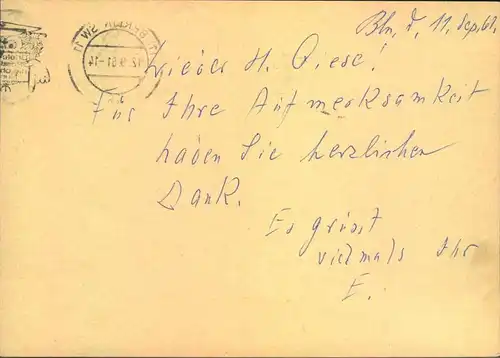 Bln, d, 11. Sep, 61.
BERLIN SW 11
12. 9. 61 - 14
Lieber H. Giese!
Für Ihre Aufmerksamkeit
haben Sie herzlichen
Dank.
Es grüsst
vielmals Ihr
E.